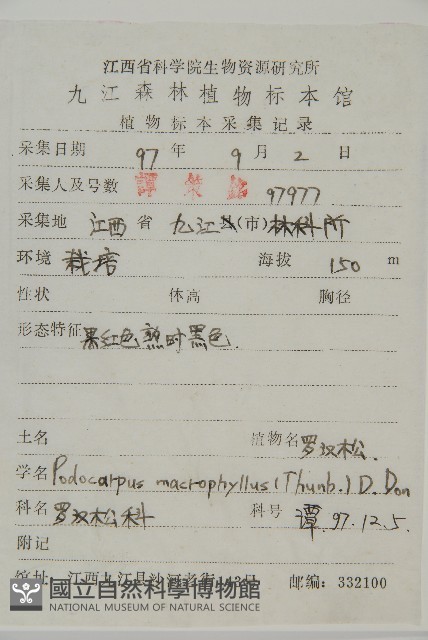 江西省科学院生物资源研究所
九江森林植物标本馆
植物标本采集记录
采集日期 97 年 9 月 2 日
采集人及号数 譚策銘 97977
采集地 江西 省 九江 县(市) 林科所
环境 栽培 海拔 150 m
性状 体高 胸径
形态特征 果红色熟时黑色.
土名 植物名 罗汉松.
学名 Podocarpus macrophyllus (Thunb.) D. Don
科名 罗汉松科 科号 谭.97.12.5.
附记
馆址: 江西九江县沙河老街 邮编: 332100
國立自然科學博物館
NATIONAL MUSEUM OF NATURAL SCIENCE